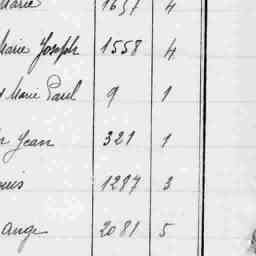 Marie 1657 4
Marie Joseph 1558 4
Marie Paul 9 1
Jean 321 1
1287 3
Ange 2081 5